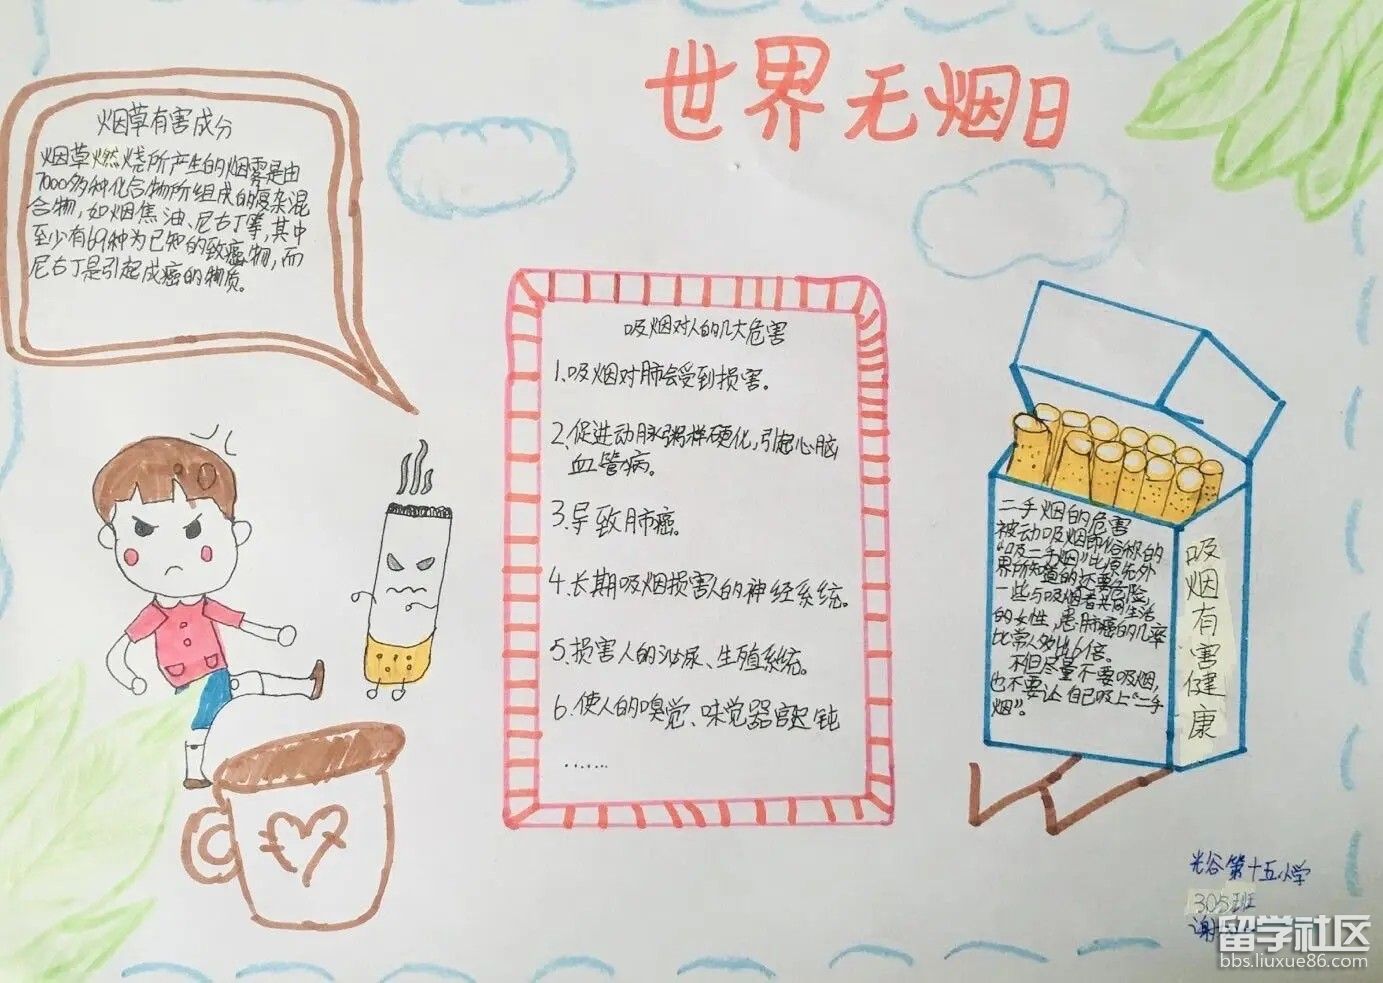 世界无烟日
烟草有害成分
烟草燃烧所产生的烟雾是由
7000多种化合物所组成的复杂混
合物，如烟焦油、尼古丁等，其中
至少有69种为已知的致癌物，而
尼古丁是引起成瘾的物质。
吸烟对人的几大危害
1.吸烟对肺会受到损害。
2.促进动脉粥样硬化，引起心脑
血管病。
3.导致肺癌。
4.长期吸烟损害人的神经系统。
5.损害人的泌尿、生殖系统。
6.使人的嗅觉、味觉器官迟钝
……
二手烟的危害
被动吸烟即俗称的
“吸二手烟”，比原先外
界所知道的还要危险，
一些与吸烟者共同生活
的女性，患肺癌的几率
比常人多出6倍。
不但尽量不要吸烟，
也不要让自己吸上“二手
烟”。
吸烟有害健康
光谷第十五小学
305班
谢
留学社区
bbs.liuxue86.com